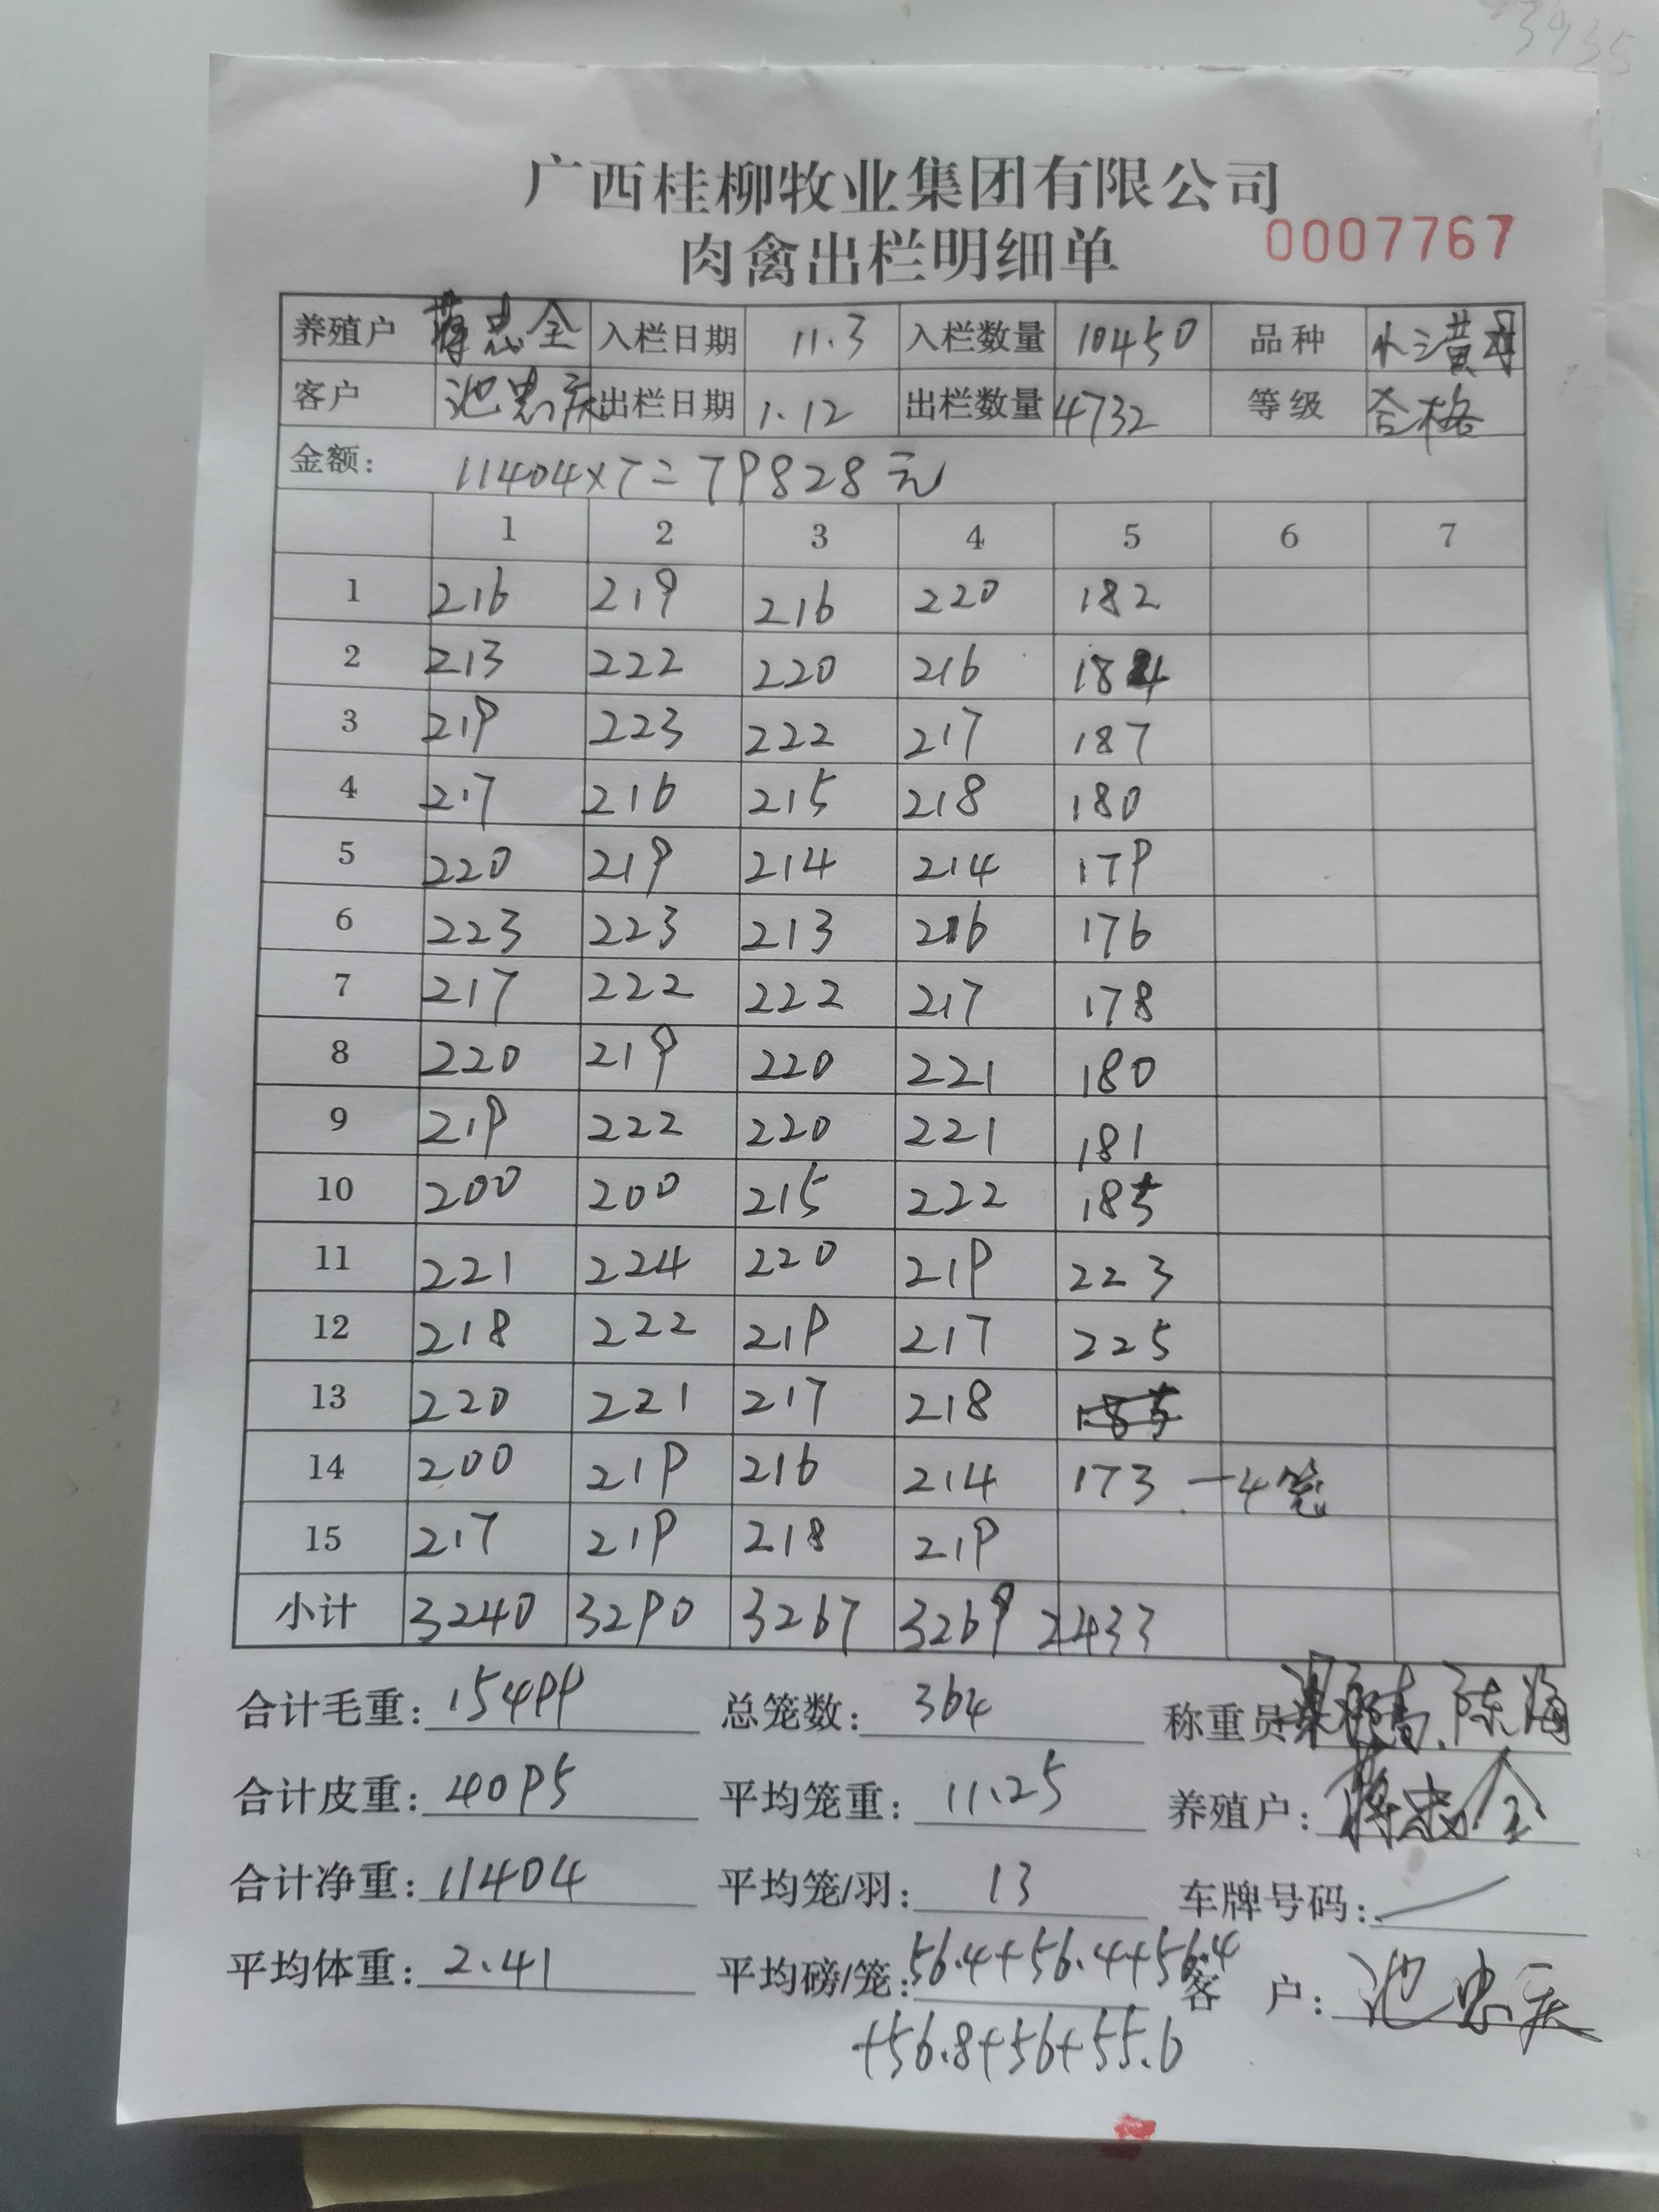 3935
广西桂柳牧业集团有限公司
肉禽出栏明细单 0007767
养殖户 蒋忠全 入栏日期 11.3 入栏数量 10450 品种 水三黄母
客户 池忠庆 出栏日期 1.12 出栏数量 4732 等级 合格
金额: 11404×7=79828元
1 2 3 4 5 6 7
1 216 219 216 220 182
2 213 222 220 216 184
3 219 223 222 217 187
4 217 216 215 218 180
5 220 219 214 214 179
6 223 223 213 216 176
7 217 222 222 217 178
8 220 219 220 221 180
9 219 222 220 221 181
10 200 200 215 222 185
11 221 224 220 219 223
12 218 222 219 217 225
13 220 221 217 218
14 200 219 216 214 173 -4笼
15 217 219 218 219
小计 3240 3290 3267 3269 2433
合计毛重: 15499 总笼数: 364 称重员 陈海
合计皮重: 4095 平均笼重: 11.25 养殖户: 蒋忠全
合计净重: 11404 平均笼/羽: 13 车牌号码:
平均体重: 2.41 平均磅/笼: 56.4+56.4+56.4 客户: 池忠庆
+56.8+56+55.6